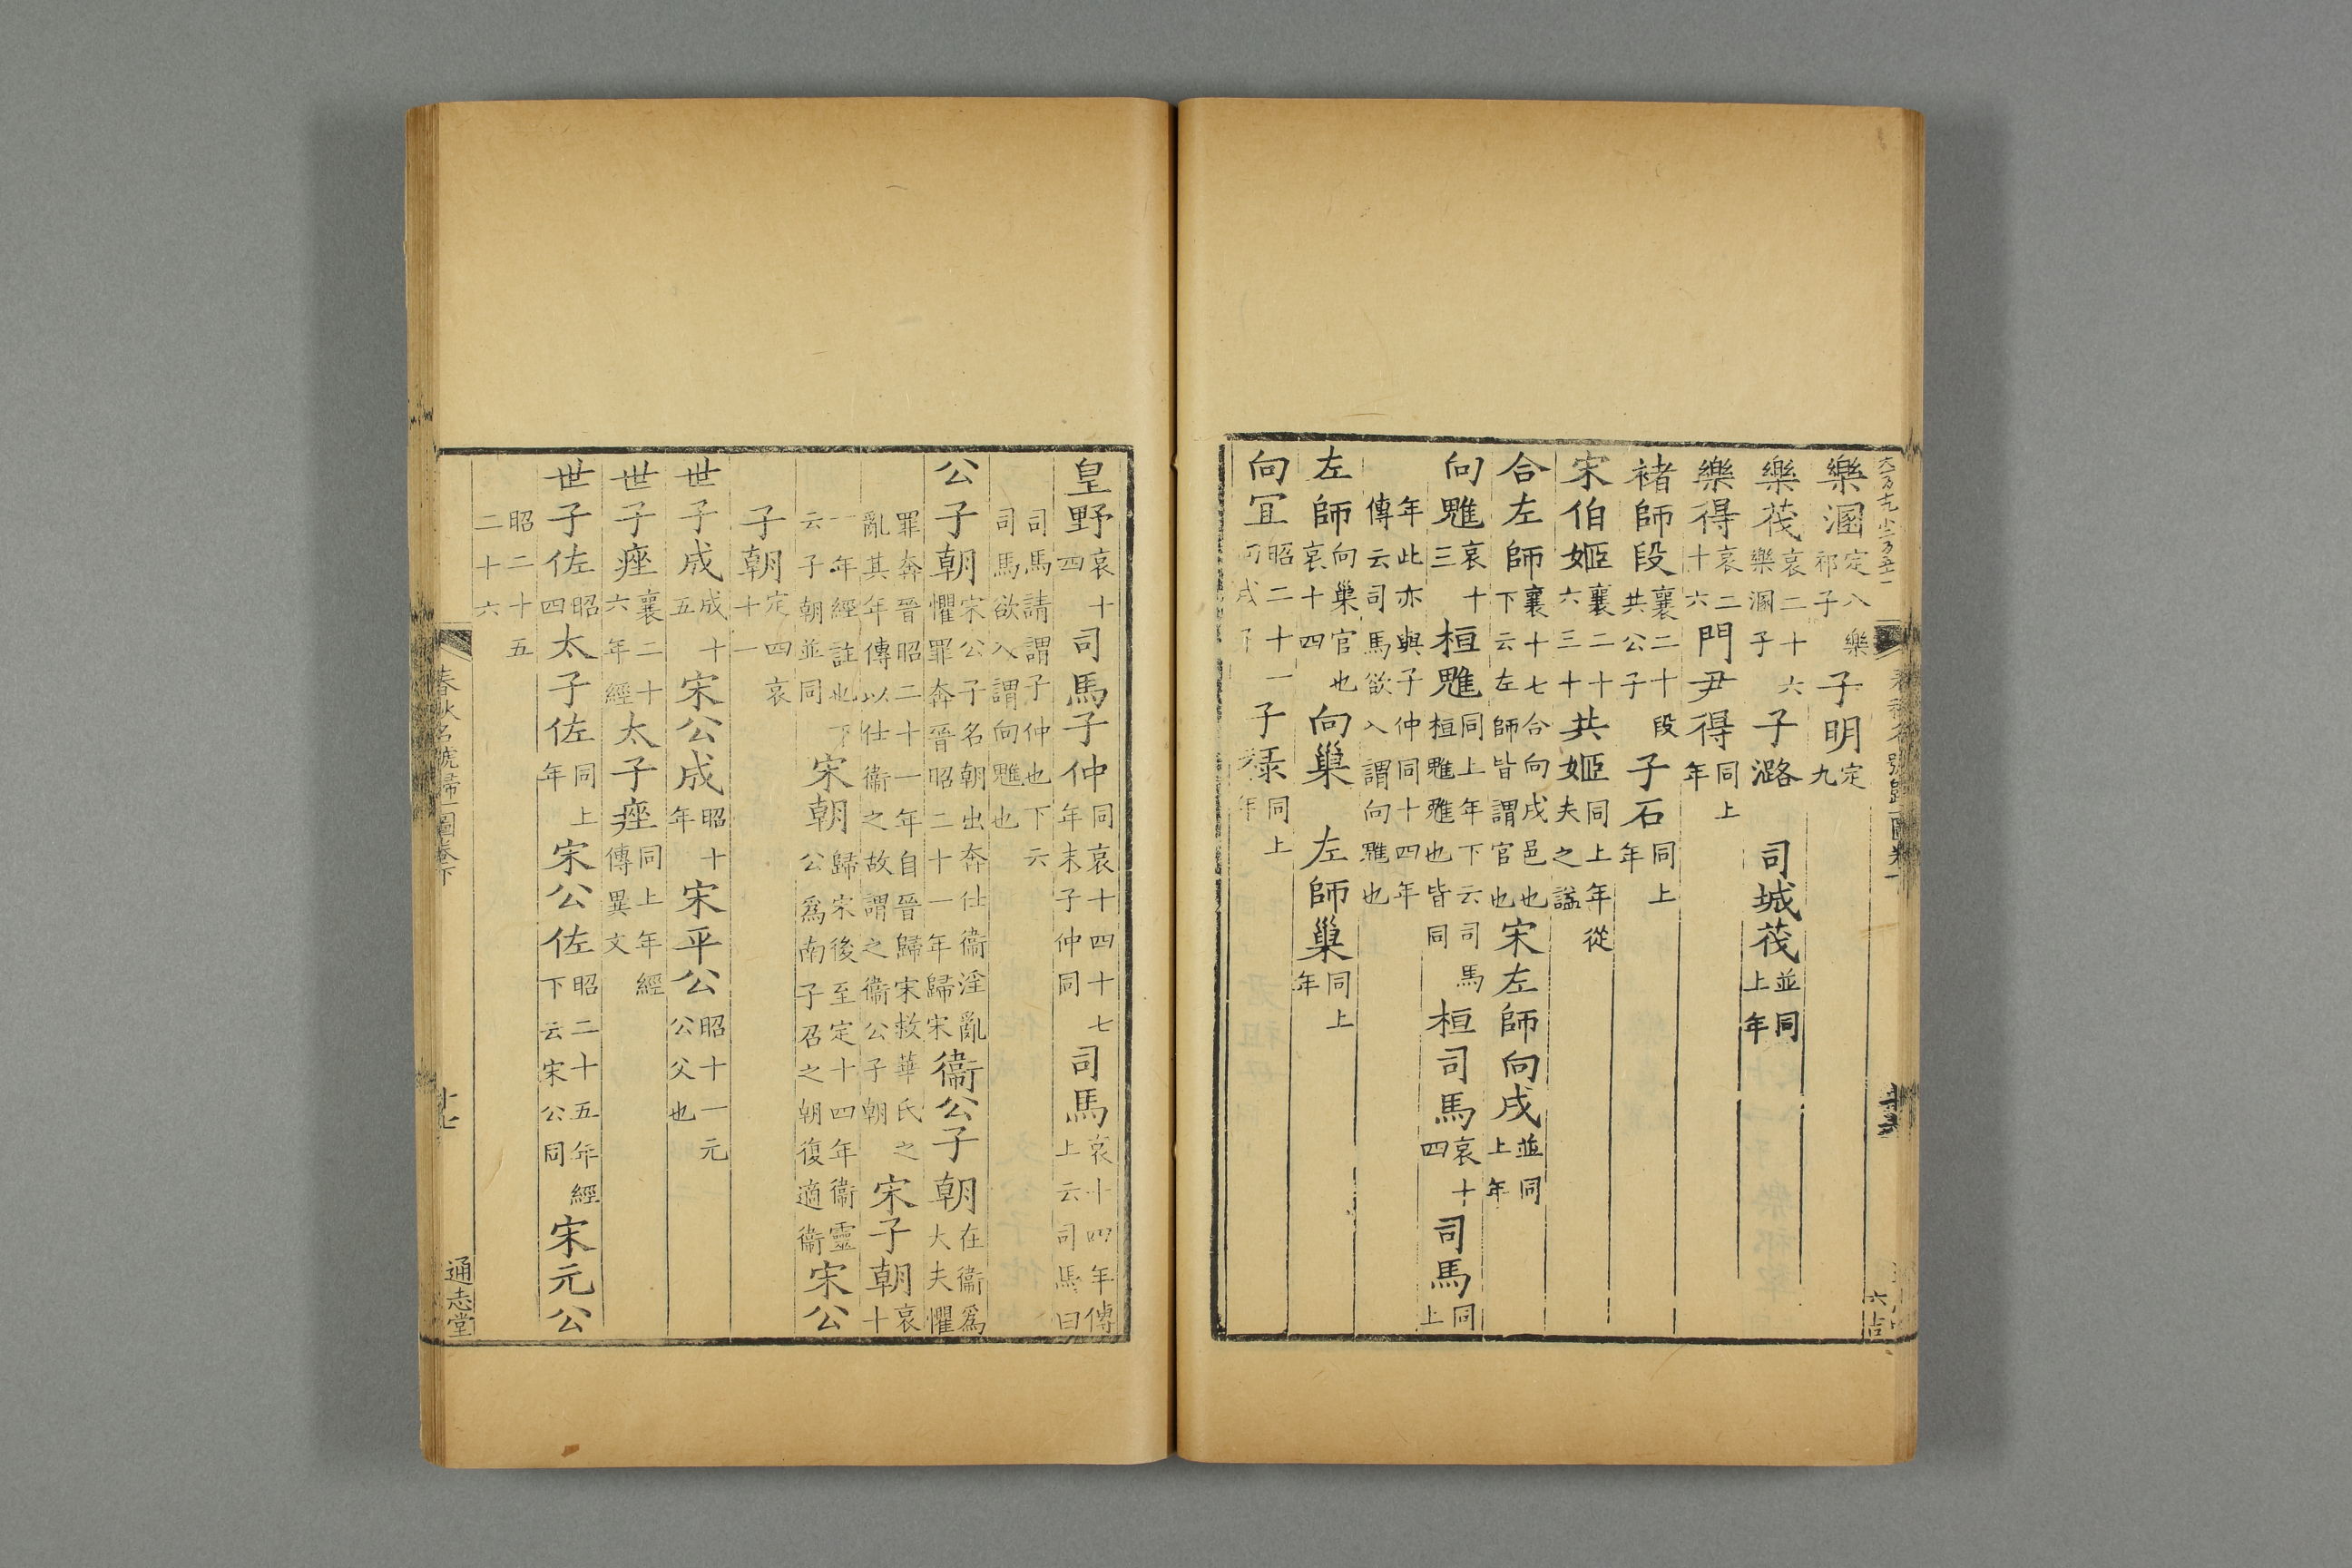 樂溷定八樂祁子子明定九
樂茷哀二十六樂溷子子潞司城茷並同上年
樂得哀二十六門尹得同上年
褚師段襄二十段共公子子石同上年
宋伯姬襄二十六三十共姬同上年從夫之諡
合左師襄十七合向戌邑也下云左師皆謂官也宋左師向戌並同上年
向魋哀十三桓魋同上年下云司馬桓魋魋也皆同桓司馬哀十四司馬同上
年此亦與子仲同十四年傳云司馬欲入謂向魋也
左師向巢官也哀十四向巢左師巢同上年
向宜昭二十一子祿同上年
皇野哀十四司馬子仲同哀十四十七年末子仲同司馬哀十四年傳上云司馬曰
司馬請謂子仲也下六司馬欲入謂向魋也
公子朝宋公子名朝出奔仕衞淫亂懼罪奔晉昭二十一年年歸宋衞公子朝在衞爲大夫懼
罪奔晉昭二十一年自晉歸宋救華氏之亂其年傳以仕衞之故謂之衞公子朝宋子朝哀十
一年經註也下云子朝並同宋朝歸宋後至定十四年衞靈公爲南子召之朝復適衞宋公
子朝定四哀十一
世子成成十五宋公成昭十年宋平公昭十一元公父也
世子痤襄二十六年經太子痤同上年經傳異文
世子佐昭四太子佐同上年宋公佐昭二十五年經下云宋公同宋元公
昭二十五二十六
春秋名號歸一圖卷下
十七
通志堂